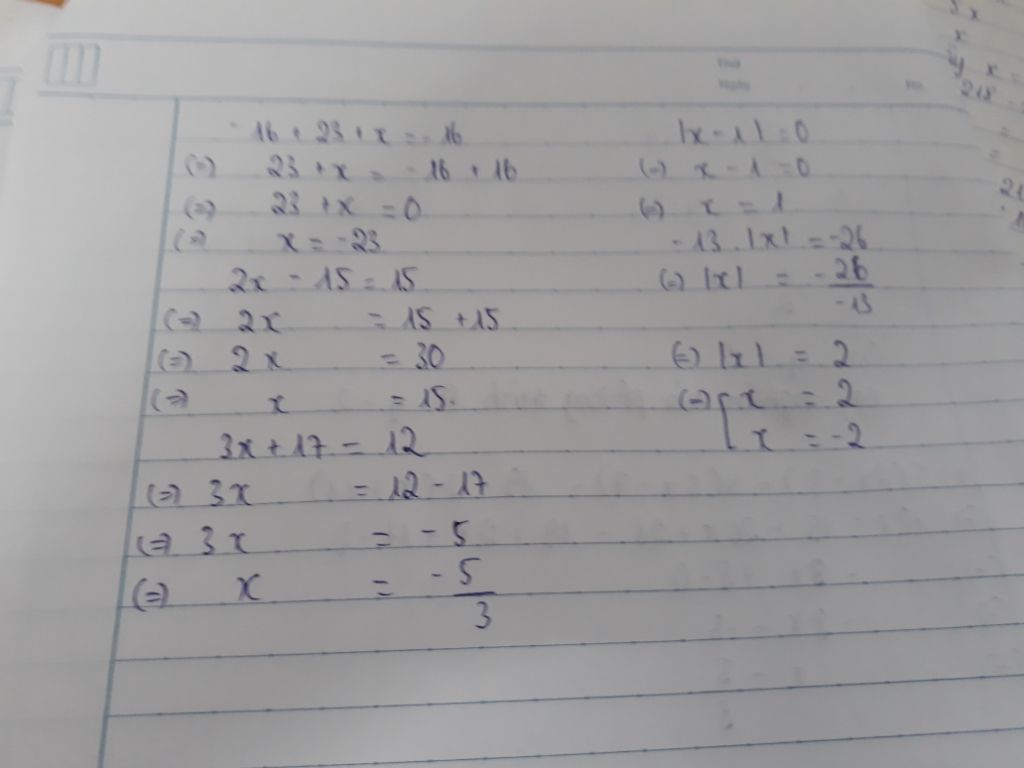 -16 + 23 + x = -16
(=) 23 + x = -16 + 16
(=) 23 + x = 0
(=) x = -23
2x - 15 = 15
(=) 2x = 15 + 15
(=) 2x = 30
(=) x = 15.
3x + 17 = 12
(=) 3x = 12 - 17
(=) 3x = -5
(=) x = -5/3
|x - 1| = 0
(=) x - 1 = 0
(=) x = 1
-13 . |x| = -26
(=) |x| = -26/-13
(=) |x| = 2
(=) [ x = 2
x = -2